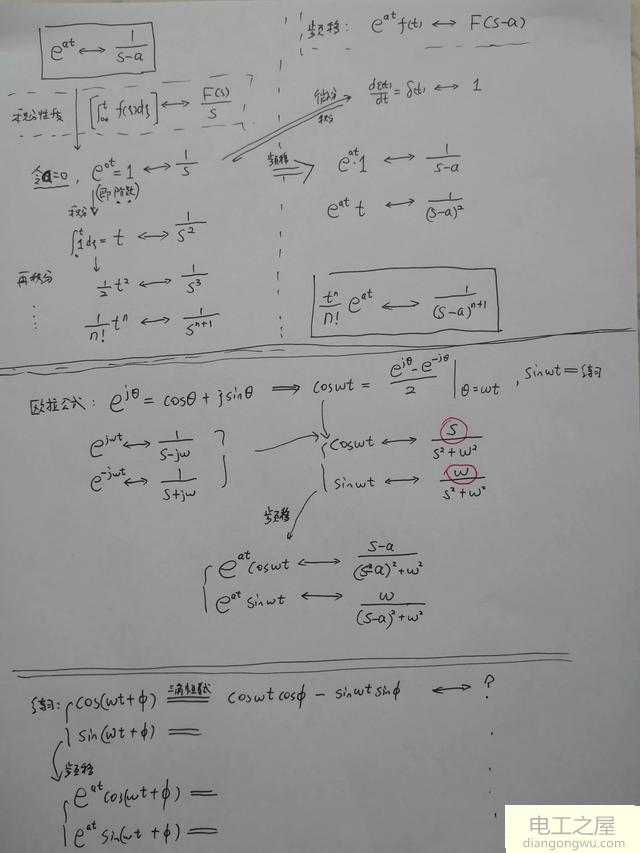 e^{at} ↔ 1/(s-a)
频移: e^{at} f(t) ↔ F(s-a)
积分性质 [∫ f(ξ)dξ] ↔ F(s)/s
微分
积分
dε(t)/dt = δ(t) ↔ 1
令a=0, e^{0t} = 1 ↔ 1/s
(即阶跃)
频移 ⇒ e^{at}·1 ↔ 1/(s-a)
积分
∫1dξ = t ↔ 1/s²
e^{at} t ↔ 1/(s-a)²
再积分
1/2 t² ↔ 1/s³
1/n! t^n ↔ 1/s^{n+1}
t^n/n! e^{at} ↔ 1/(s-a)^{n+1}
欧拉公式: e^{jθ} = cosθ + jsinθ ⇒ coswt = (e^{jθ} - e^{-jθ})/2 | θ=wt , sinwt = 练习
e^{jwt} ↔ 1/(s-jw)
e^{-jwt} ↔ 1/(s+jw)
coswt ↔ s/(s²+w²)
sinwt ↔ w/(s²+w²)
频移
e^{at} coswt ↔ (s-a)/((s-a)²+w²)
e^{at} sinwt ↔ w/((s-a)²+w²)
练习: cos(wt+φ) = coswt cosφ - sinwt sinφ ↔ ?
sin(wt+φ) =
频移
e^{at} cos(wt+φ) =
e^{at} sin(wt+φ) =
电工之屋
diangongwu.com